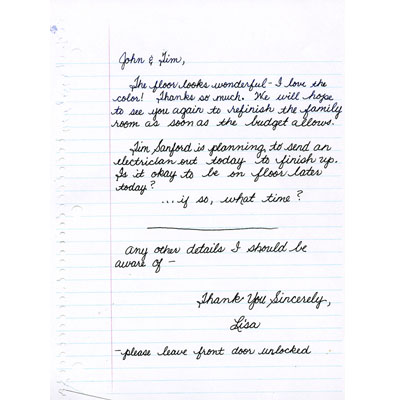 John & Tim,
The floor looks wonderful - I love the
color! Thanks so much. We will hope
to see you again to refinish the family
room as soon as the budget allows.
Tim Sanford is planning to send an
electrician out today to finish up.
Is it okay to be on floor later
today?
... if so, what time?
any other details I should be
aware of -
Thank You Sincerely,
Lisa
- please leave front door unlocked